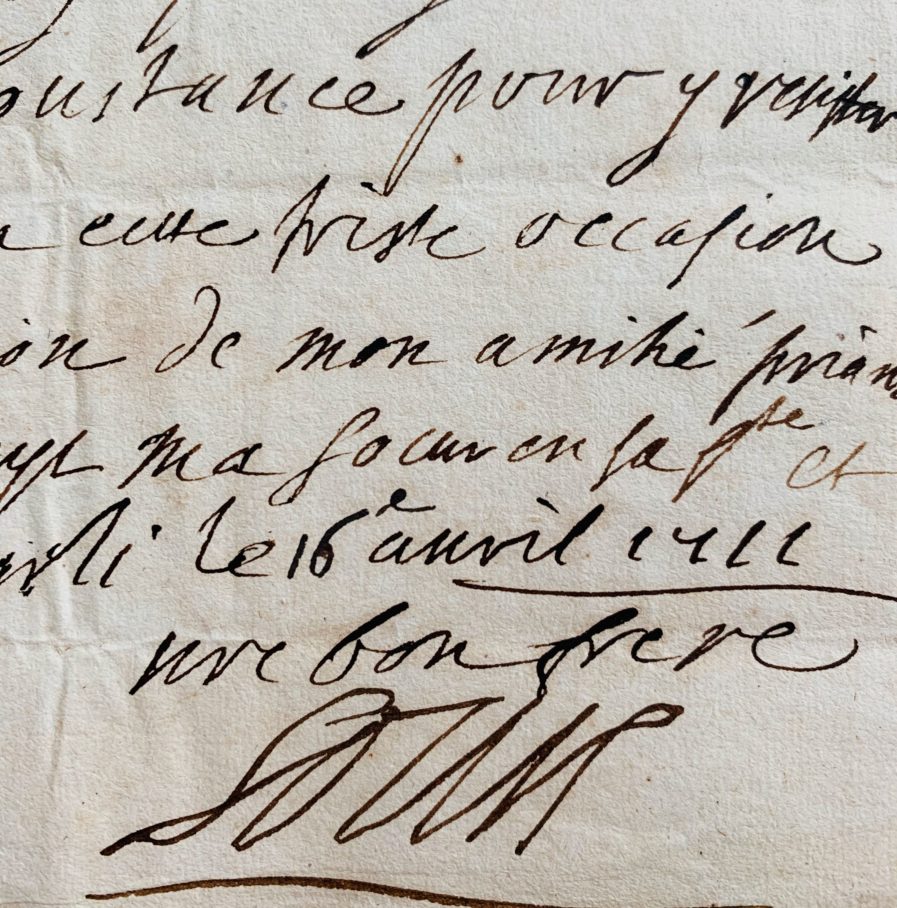 onstance pour y resister
n cette triste occasion
ion de mon amitié prian
ayt ma soeur en sa ste et
arli le 16e auvril 1711
vre bon frere
Louis